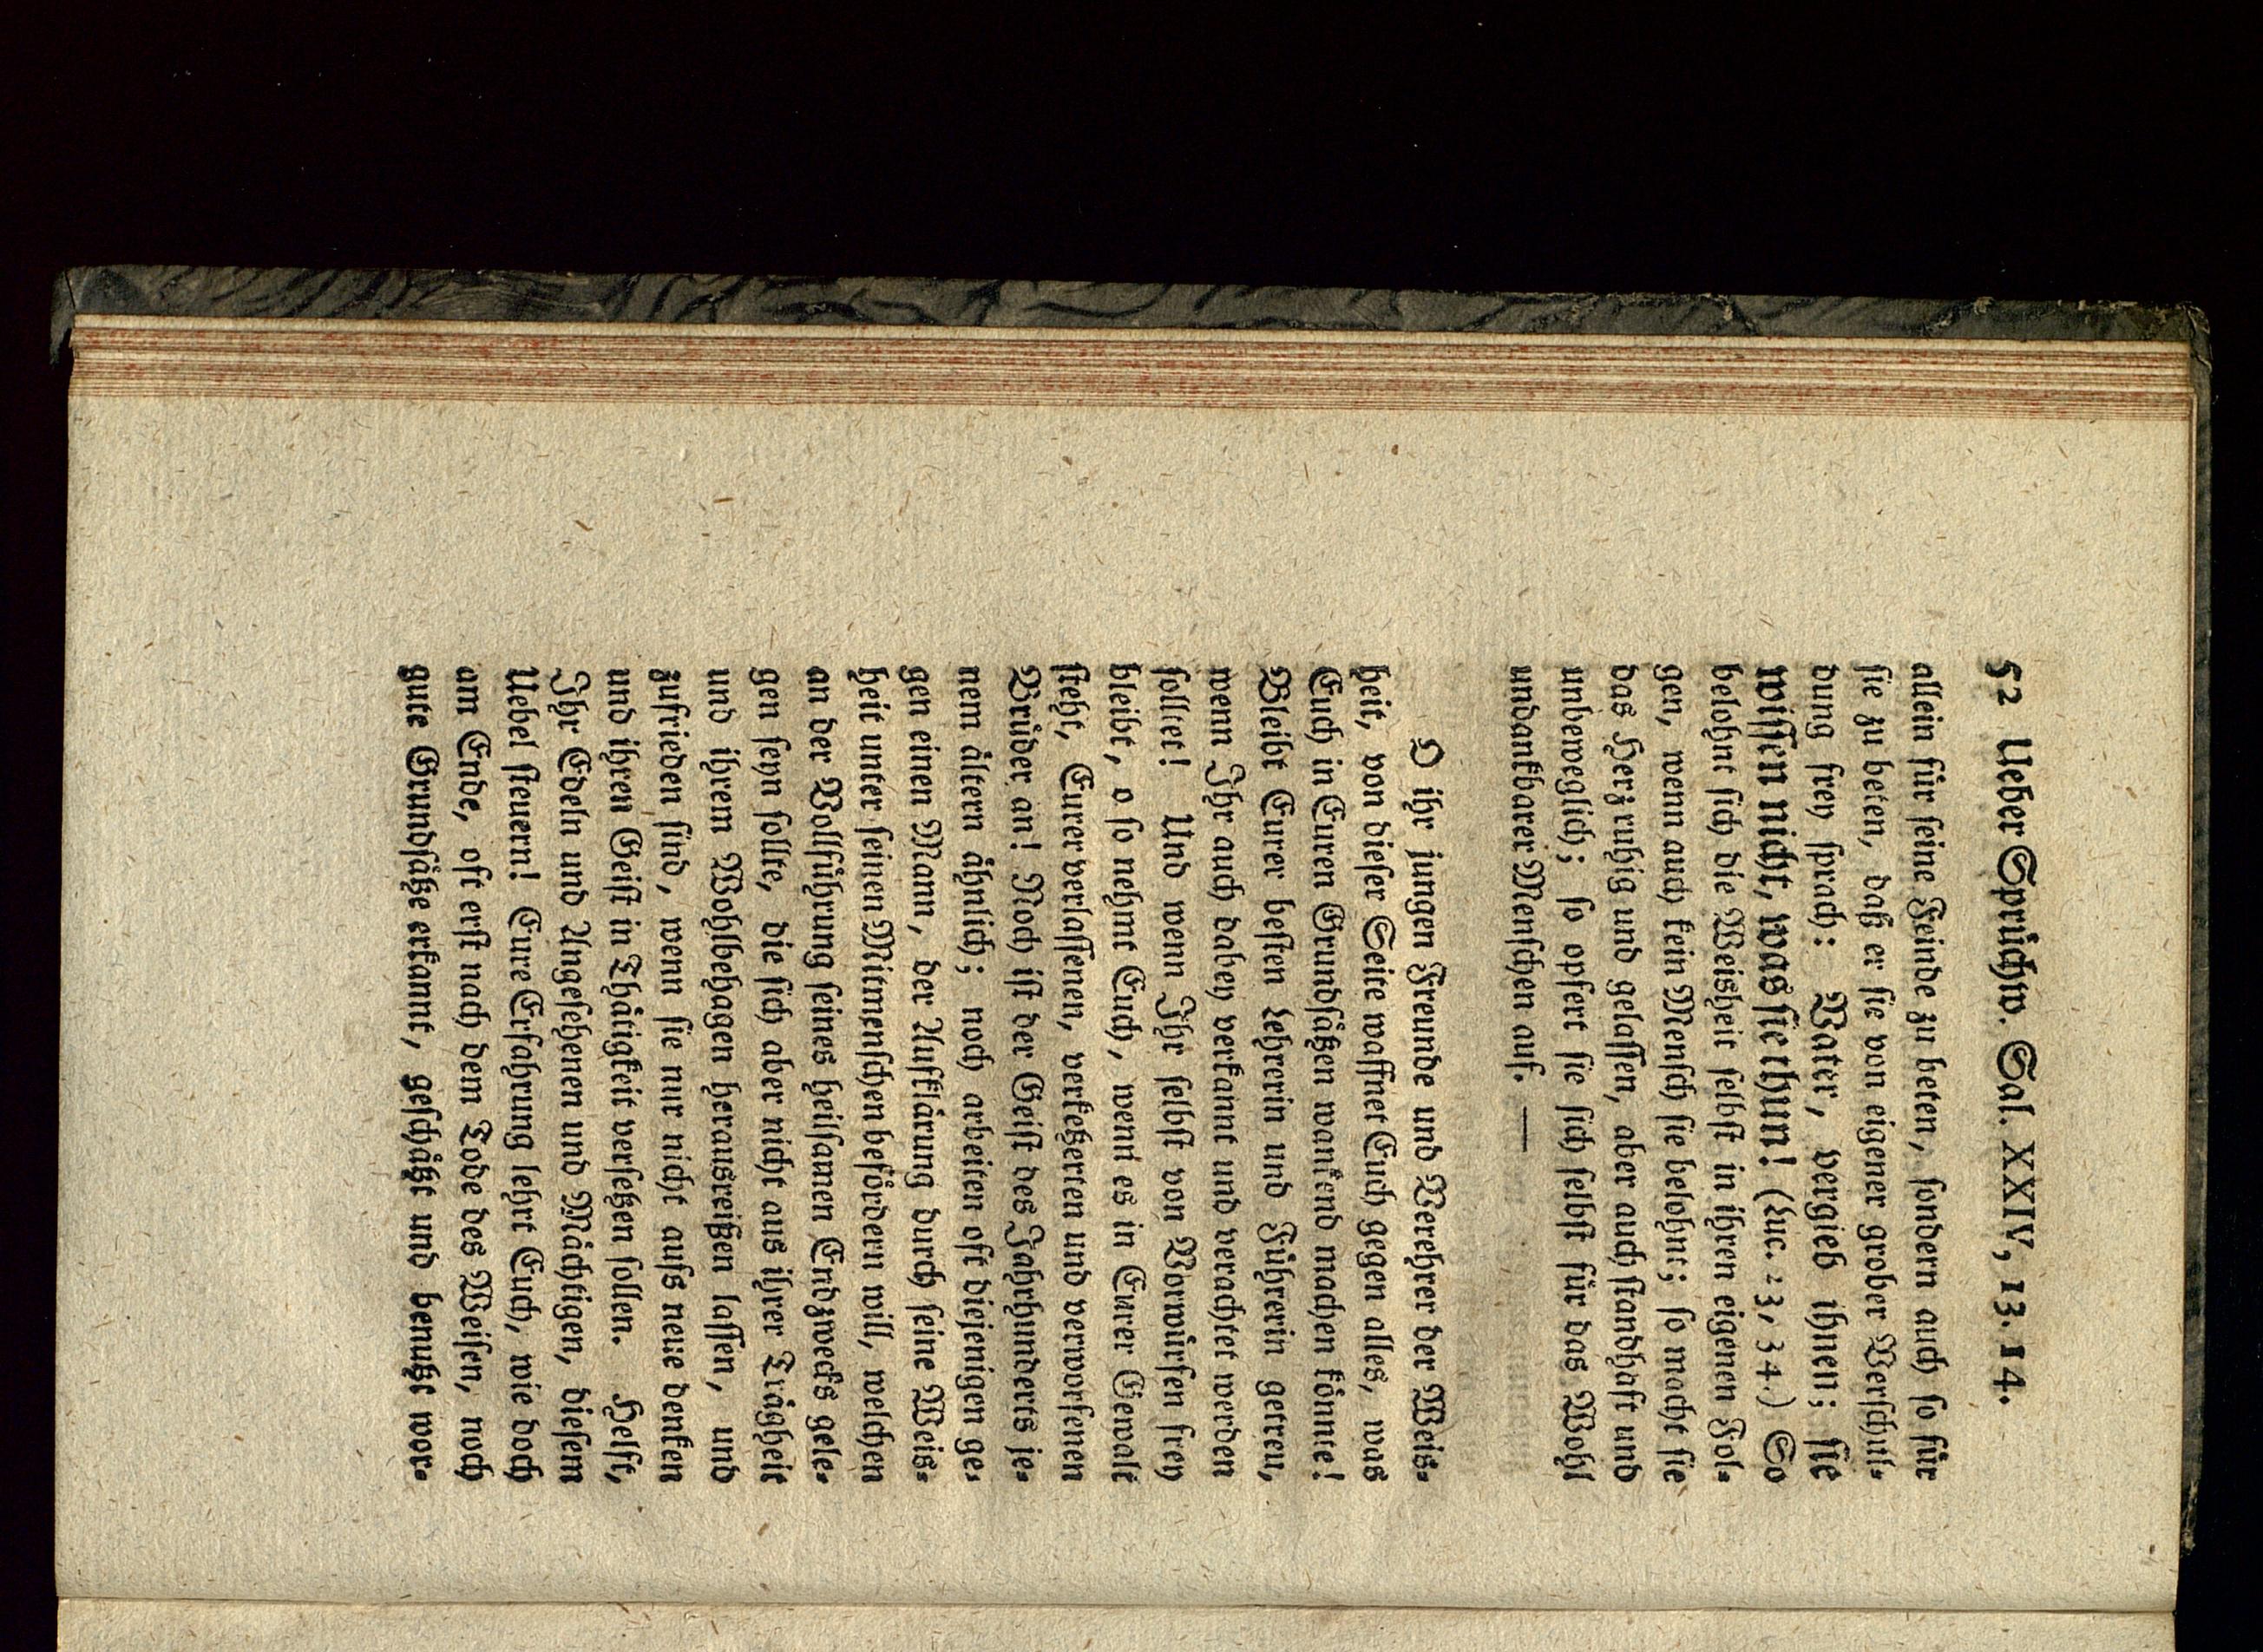 52 Ueber Sprüchw. Sal. XXIV, 13. 14.
allein für ſeine Feinde zu beten, ſondern auch ſo für
ſie zu beten, daß er ſie von eigener grober Verſchul-
dung frey ſprach: Vater, vergieb ihnen; ſie
wiſſen nicht, was ſie thun! (Luc. 23, 34.) So
belohnt ſich die Weisheit ſelbſt in ihren eigenen Fol-
gen, wenn auch kein Menſch ſie belohnt; ſo macht ſie
das Herz ruhig und gelaſſen, aber auch ſtandhaft und
unbeweglich; ſo opfert ſie ſich ſelbſt für das Wohl
undankbarer Menſchen auf. —
O ihr jungen Freunde und Verehrer der Weis-
heit, von dieſer Seite waffnet Euch gegen alles, was
Euch in Euren Grundſätzen wankend machen könnte!
Bleibt Eurer beſten Lehrerin und Führerin getreu,
wenn Ihr auch dabey verkannt und verachtet werden
ſolltet! Und wenn Ihr ſelbſt von Vorwürfen frey
bleibt, o ſo nehmt Euch, wenn es in Eurer Gewalt
ſteht, Eurer verlaſſenen, verketzerten und verworfenen
Brüder an! Noch iſt der Geiſt des Jahrhunderts je-
nem ältern ähnlich; noch arbeiten oft diejenigen ge-
gen einen Mann, der Aufklärung durch ſeine Weis-
heit unter ſeinen Mitmenſchen befördern will, welchen
an der Vollführung ſeines heilſamen Endzwecks gele-
gen ſeyn ſollte, die ſich aber nicht aus ihrer Trägheit
und ihrem Wohlbehagen herausreißen laſſen, und
zufrieden ſind, wenn ſie nur nicht aufs neue denken
und ihren Geiſt in Thätigkeit verſetzen ſollen. Helft,
Ihr Edeln und Angeſehenen und Mächtigen, dieſem
Uebel ſteuern! Eure Erfahrung lehrt Euch, wie doch
am Ende, oft erſt nach dem Tode des Weiſen, noch
gute Grundſätze erkannt, geſchätzt und benutzt wor-